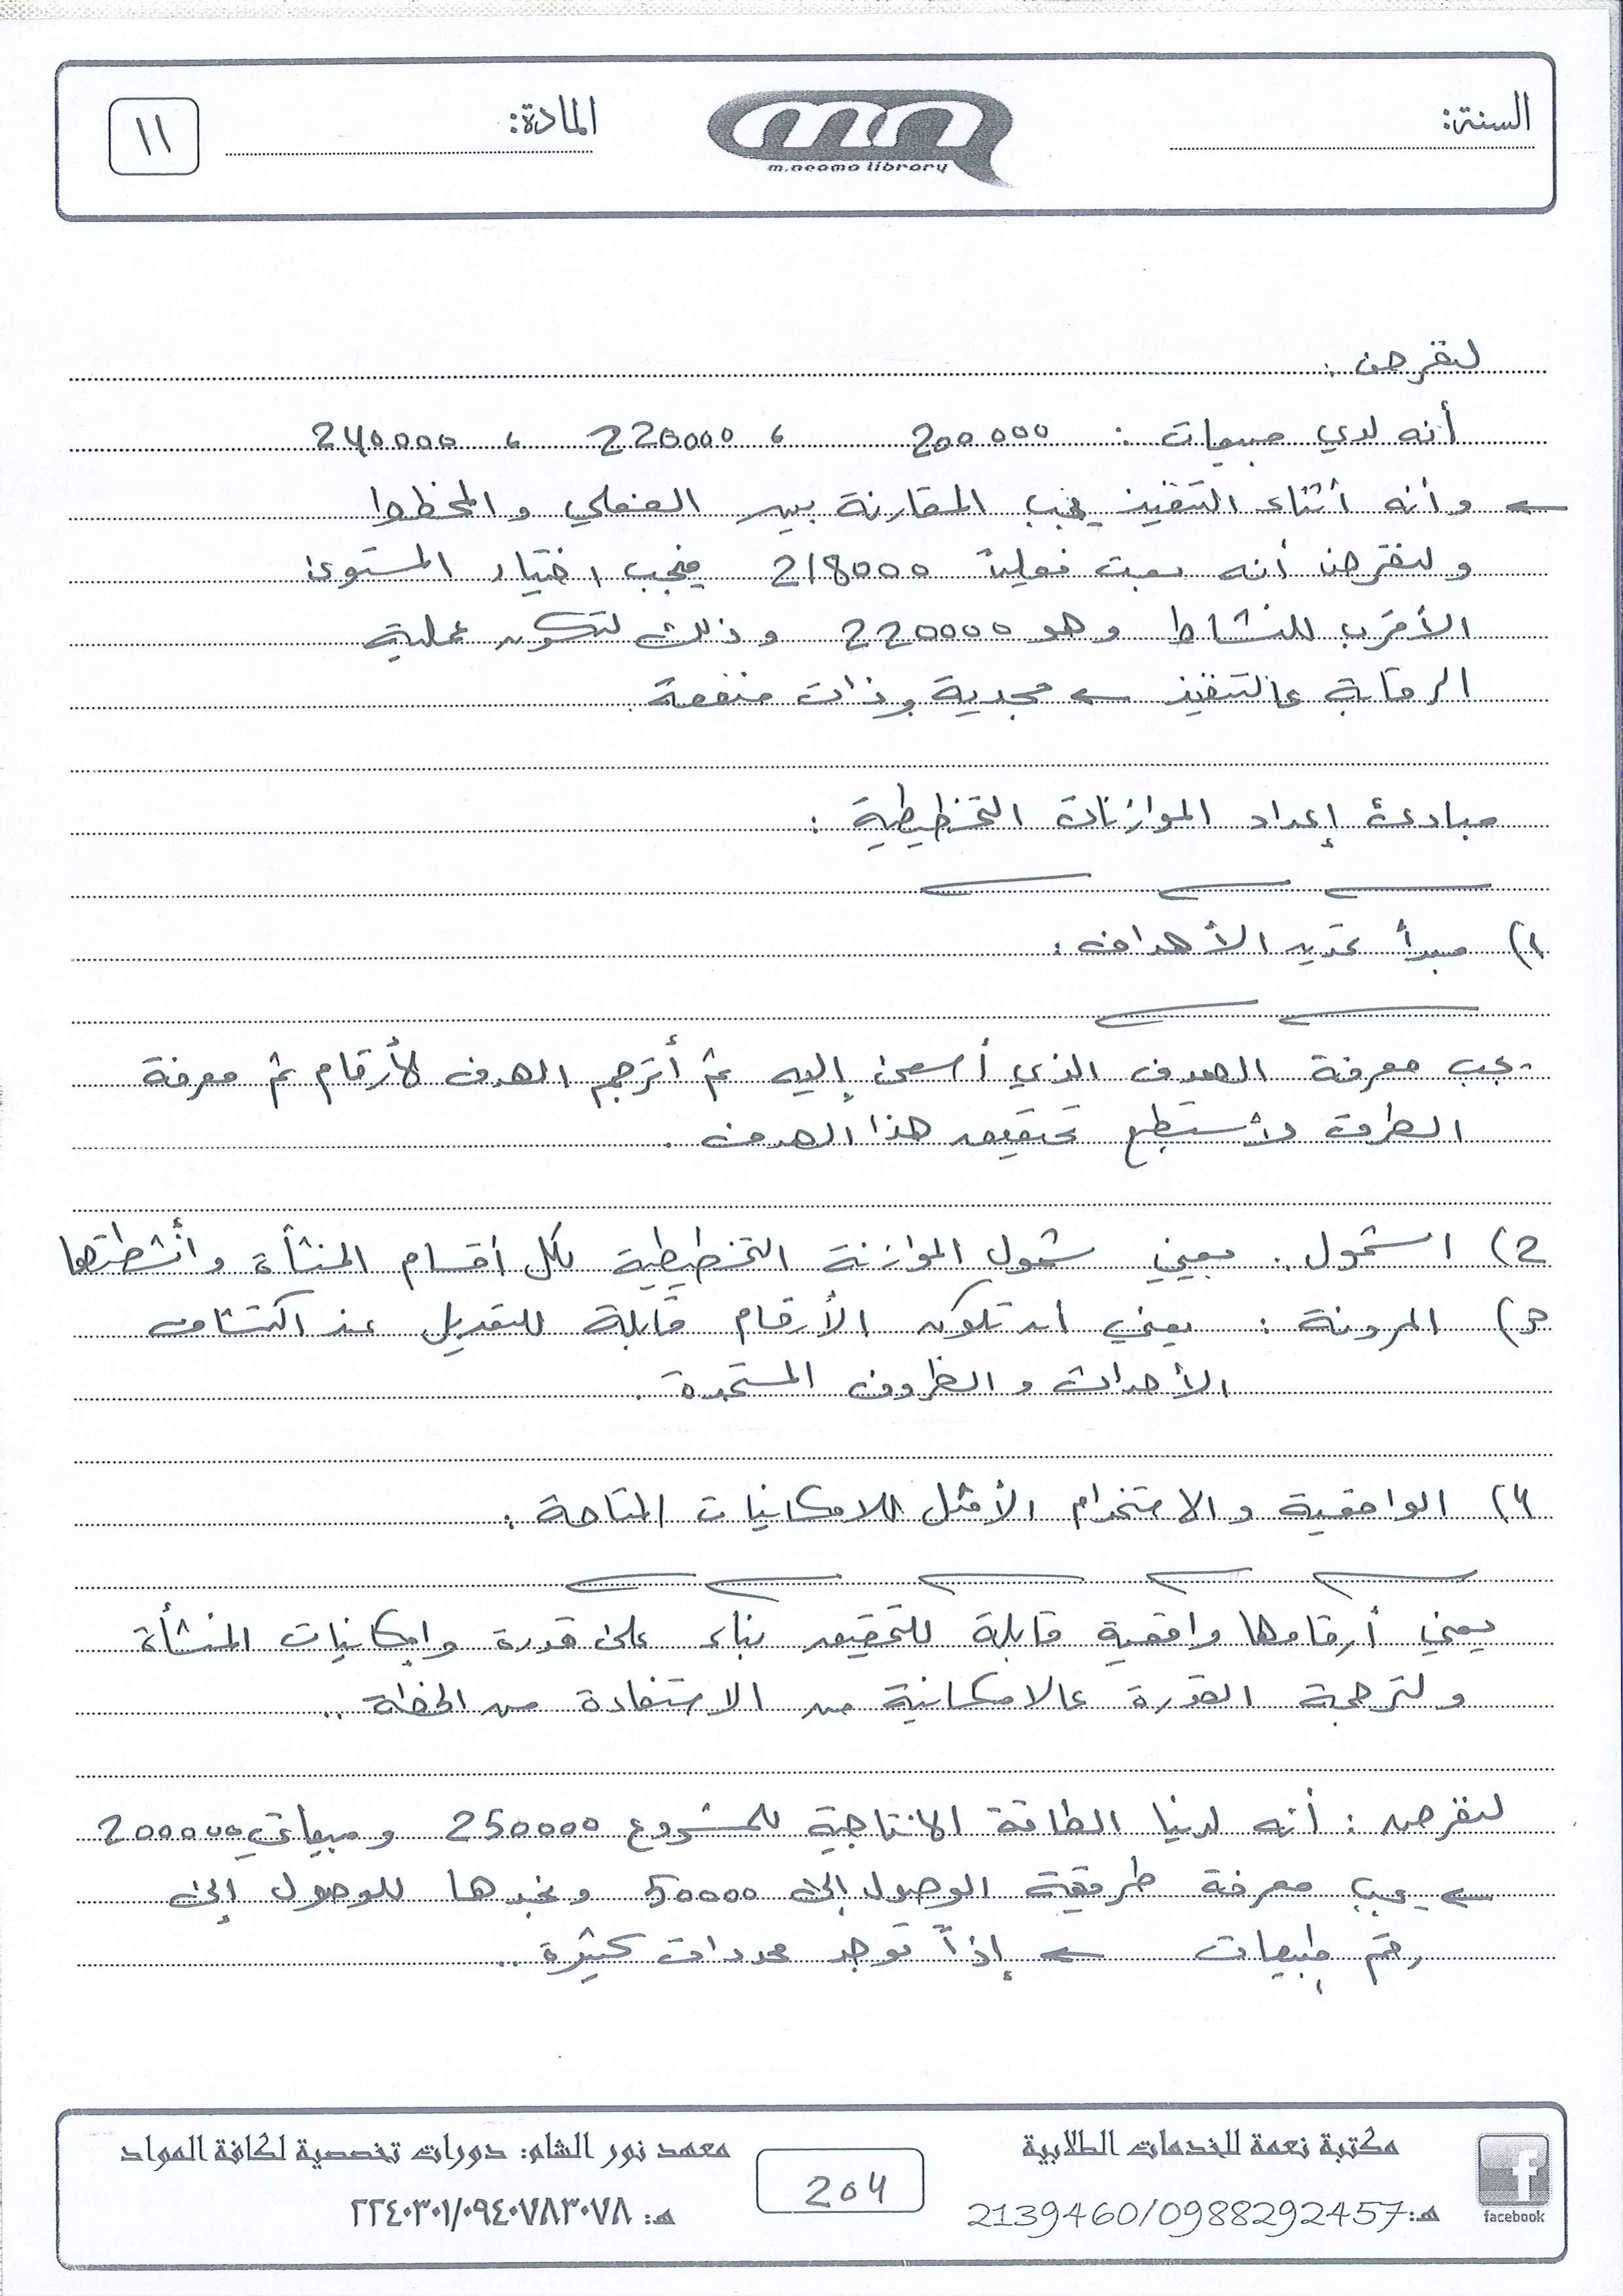 السنة:
m.neama library
المادة:
١١
لنفرض :
أنه لدي مبيعات : 200000 ، 220000 ، 240000
← وأنه أثناء التنفيذ يجب المقارنة بين الفعلي والمخطط
ولنفرض أنه بعت فعلياً 218000 فيجب اختيار المستوى
الأقرب للنشاط وهو 220000 وذلك لتكون عملية
الرقابة عالتنفيذ ← مجدية وذات منفعة .
مبادئ إعداد الموازنات التخطيطية :
1) مبدأ تحديد الأهداف :
- يجب معرفة الهدف الذي أسعى إليه ثم أترجم الهدف لأرقام ثم معرفة
الطرق لأستطيع تحقيق هذا الهدف .
2) الشمول : يعني شمول الموازنة التخطيطية لكل أقسام المنشأة وأنشطتها
3) المرونة : يعني أن تكون الأرقام قابلة للتعديل عند اكتشاف
الأحداث والظروف المستجدة .
4) الواقعية والاستخدام الأمثل للامكانيات المتاحة :
يعني أرقامها واقعية قابلة للتحقيق بناء على قدرة وإمكانيات المنشأة
ولترجمة القدرة عالامكانية من الاستفادة من الخطة ..
لنفرض : أنه لدينا الطاقة الانتاجية للمشروع 250000 ومبيعاتي 200000
← يجب معرفة طريقة الوصول إلى 50000 ونجدها للوصول إلى
رقم مبيعات ← إذاً توجد محددات كثيرة ..
مكتبة نعمة للخدمات الطلابية
هـ: 2139460/0988292457
facebook
204
معهد نور الشام: دورات تخصصية لكافة المواد
هـ: ٢٢٤٠٣٠١/٠٩٤٠٧٨٣٠٧٨